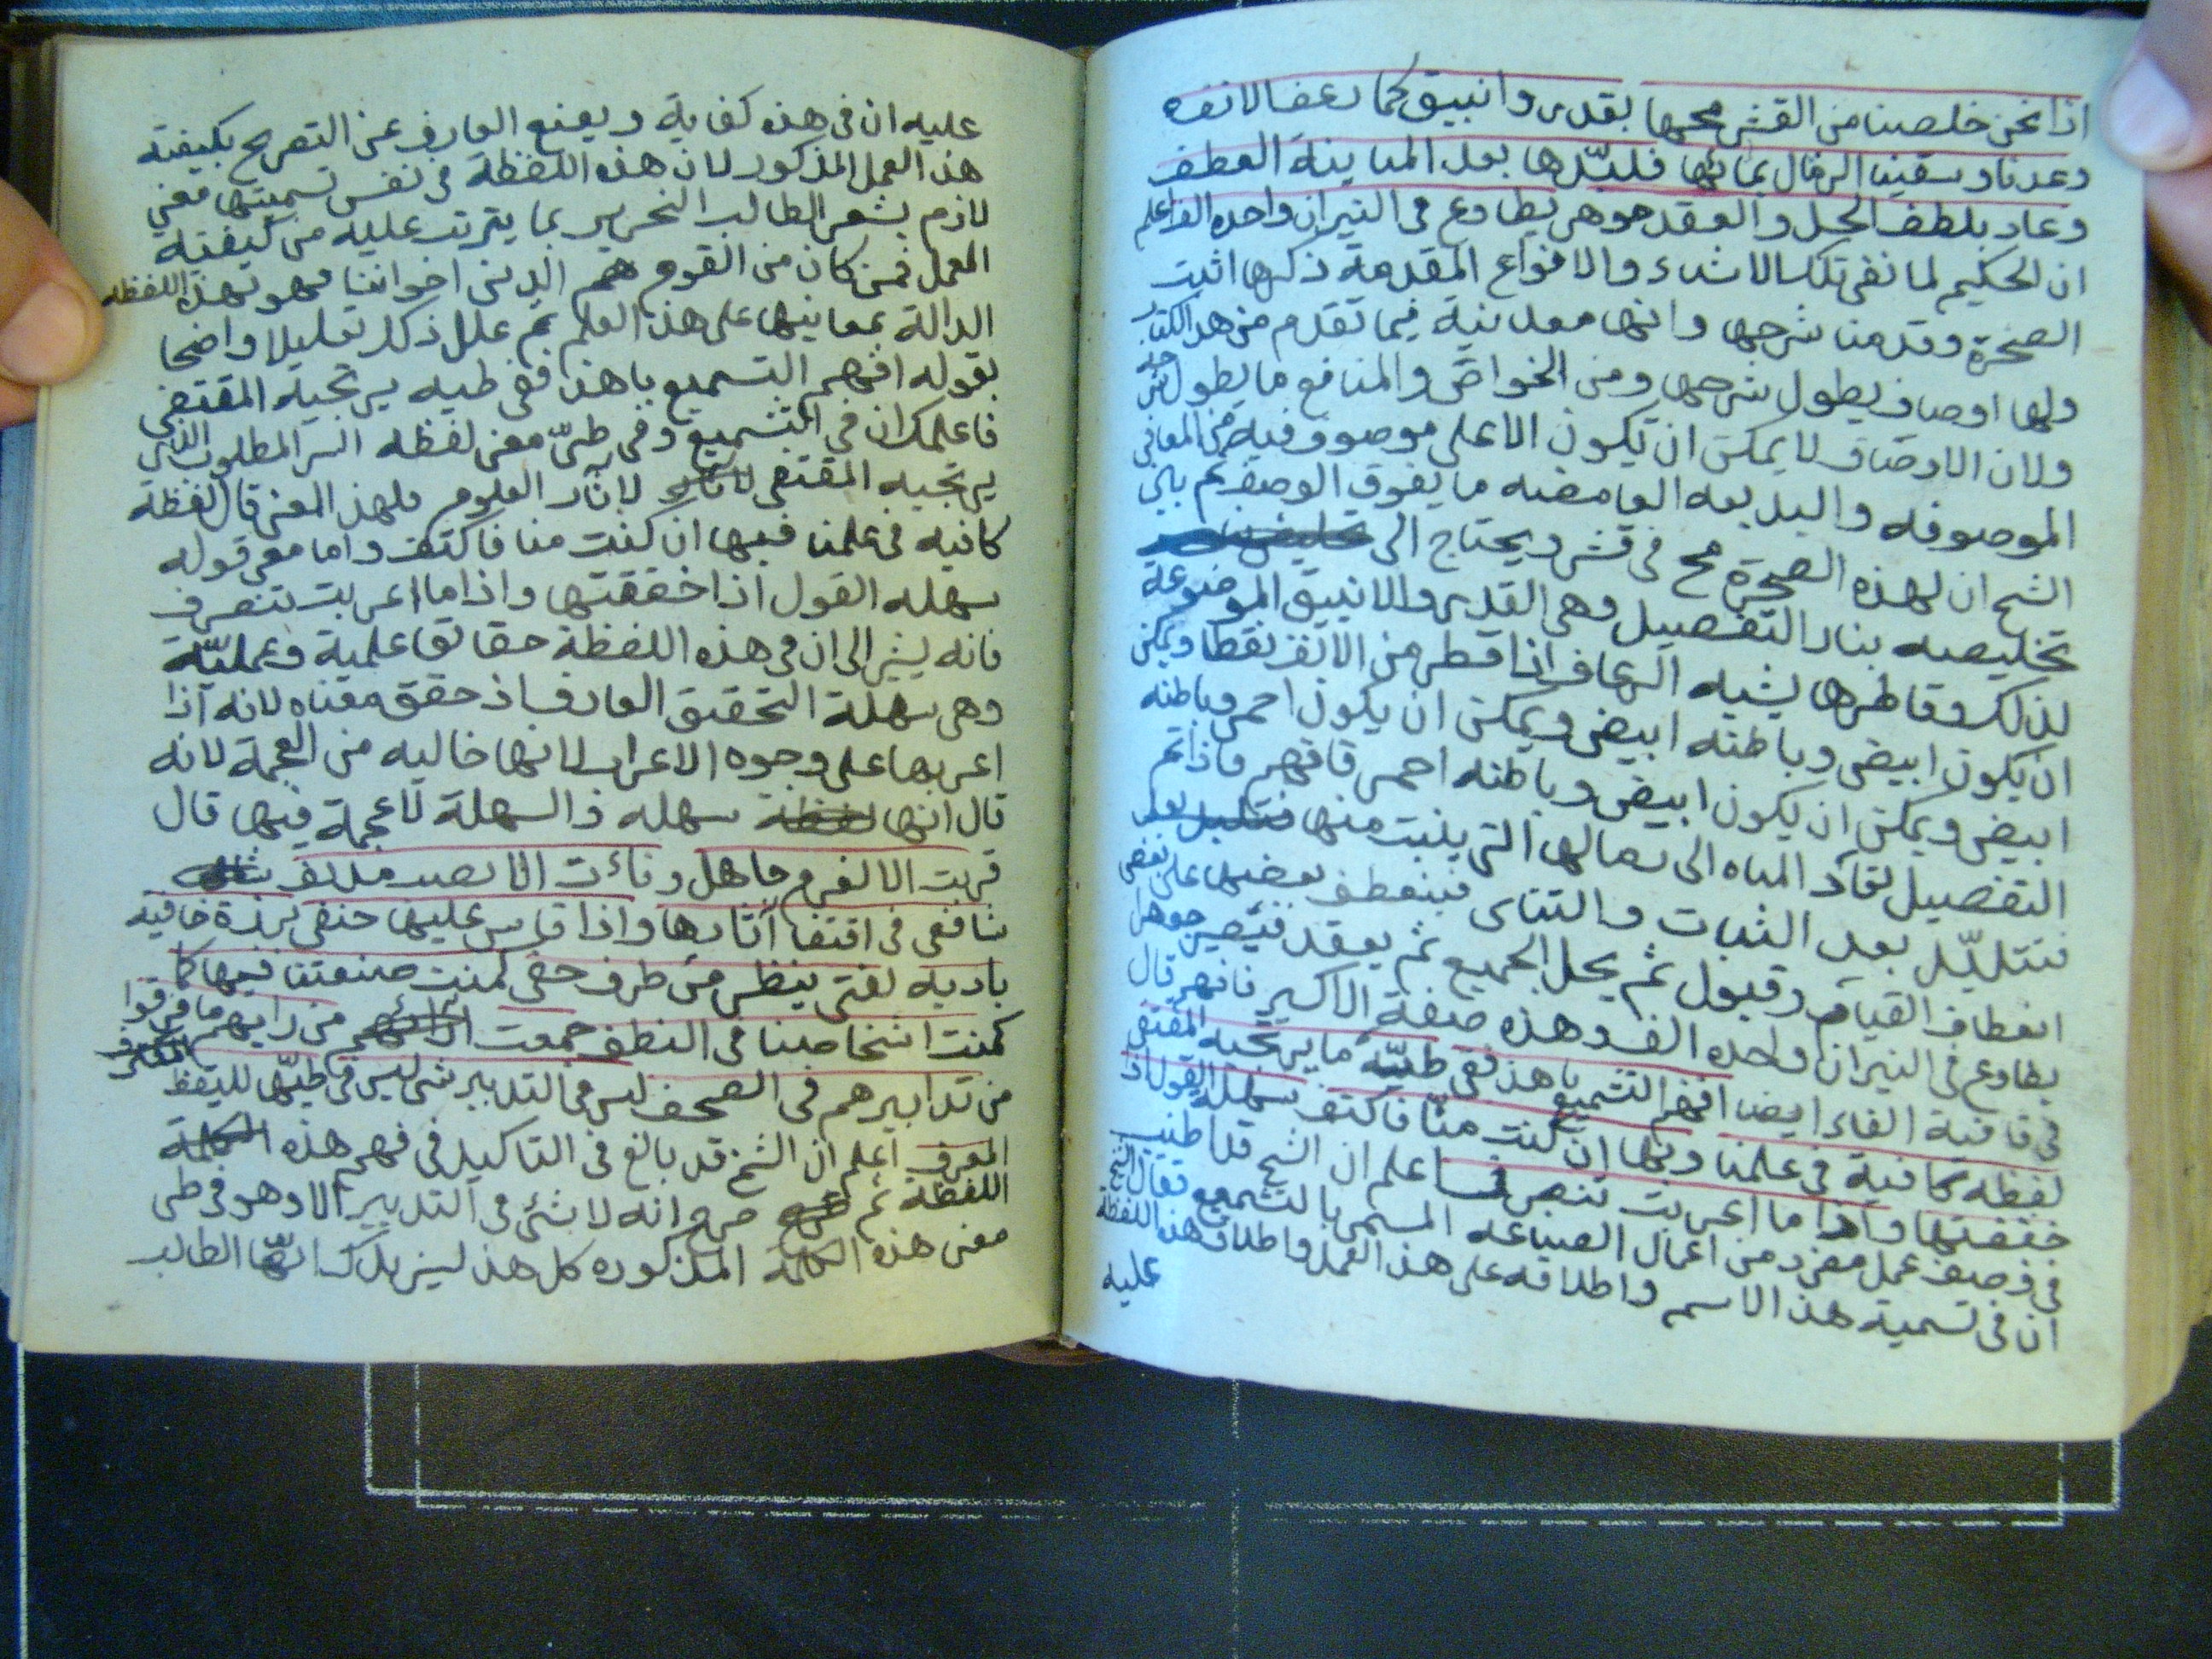 اذا نحن خلصنا من القشر محها بقدر وانبيق كما رعف الانف
وعدنا وسقينا الرمال بمائها فلبدها بعد المباينة العطف
وعاد بلطف الحل والعقد جوهر يطاوع في النيران واحده الف اعلم
ان الحكيم لما نفى تلك الاشياء والانواع المقدمة ذكرها اثبت
الصخرة وقدمنا شرحها وانها معدنية فيما تقدم من هذا الكتاب
ولها اوصاف يطول شرحها ومن الخواص والمنافع ما يطول شرحه
ولان الاوصاف لا يمكن ان تكون الا على موصوف فيه من المعاني
الموصوفه والبديعه الغامضه ما يفوق الوصف ثم بين
الشيخ ان لهذه الصخرة مح في قشر ويحتاج الى
تخليصه بنار التفصيل وهي القدر والانبيق الموضوعة
لذلك وقاطرها يشبه الرعاف اذا قطر من الانف نقطا ويمكن
ان يكون ابيض وباطنه ابيض ويمكن ان يكون احمر وباطنه
ابيض ويمكن ان يكون ابيض وباطنه احمر فافهم فاذا تم
التفصيل تعاد المياه الى رمالها التي ينبت منها
فتتلبد بعد الثبات والتنائ فينعطف بعضها على بعض
انعطاف القيام وقبول ثم يحل الجميع ثم يعقد فيصير جوهرا
يطاوع في النيران واحده الف وهذه صفة الاكسير فافهم قال
في قافية الفاء ايضا افهم التشميع يا هذا ففي طيه ما يرتجيه المقتفي
لفظه كافية في علمنا وبها ان كنت منا فاكتف سهلة القول اذ
خففتها واذا ما اعربت تنصرف اعلم ان الشيخ قد اطنب
في وصف عمل مفرد من اعمال الصناعه المسمى بالتشميع فقال الشيخ
ان في تسمية هذا الاسم واطلاقه على هذا العمل واطلاق هذه اللفظة
عليه
عليه ان في هذه كفاية ويغنع العارف عن التصريح بكيفية
هذا العمل المذكور لان هذه اللفظة في نفس تسميتها معنى
لازم يشعر الطالب النحرير بما يترتب عليه من كيفية
العمل فمن كان من القوم هم الذين اخواننا فهو بهذه اللفظه
الدالة بمعانيها على هذا العلم ثم علل ذلك تعليلا واضحا
بقوله افهم التشميع يا هذا ففي طيه يرتجيه المقتفي
فاعلمك ان في التشميع وفي طيّ معنى لفظه السر المطلوب الذي
يرتجيه المقتفي لاثار العلوم فلهذا المعنى قال لفظة
كافيه في علمنا فبها ان كنت منا فاكتف واما معنى قوله
سهله القول اذا خففتها واذا ما اعربت تنصرف
فانه يشير الى ان في هذه اللفظة حقائق علمية وعمليّة
وهي سهلة التحقيق العارف اذ حقق معناه لانه اذا
اعربها على وجوه الاعراب لانها خاليه من العجمة لانه
قال انها سهله والسهلة لا عجمة فيها قال
قربت الا لغمر جاهل وناءت الا
شافعي في اقتفا آثارها واذا قاس عليها حنفي برزة خافيه
باديه لفتى ينظر من طرف خفي كمنت صنعتنا فيها كما
كمنت اشخاصنا في النطف جمعت من رايهم ما فرقوا
من تدابيرهم في الصحف ليس في التدبير شي ليس في طيها لليقظ
المعترف اعلم ان الشيخ قد بالغ في التاكيد في فهم هذه
اللفظة ثم صرح انه لا شئ في التدبير الا وهو في طى
معنى هذه الكلمة المذكوره كل هذا ليزيدك ايها الطالب